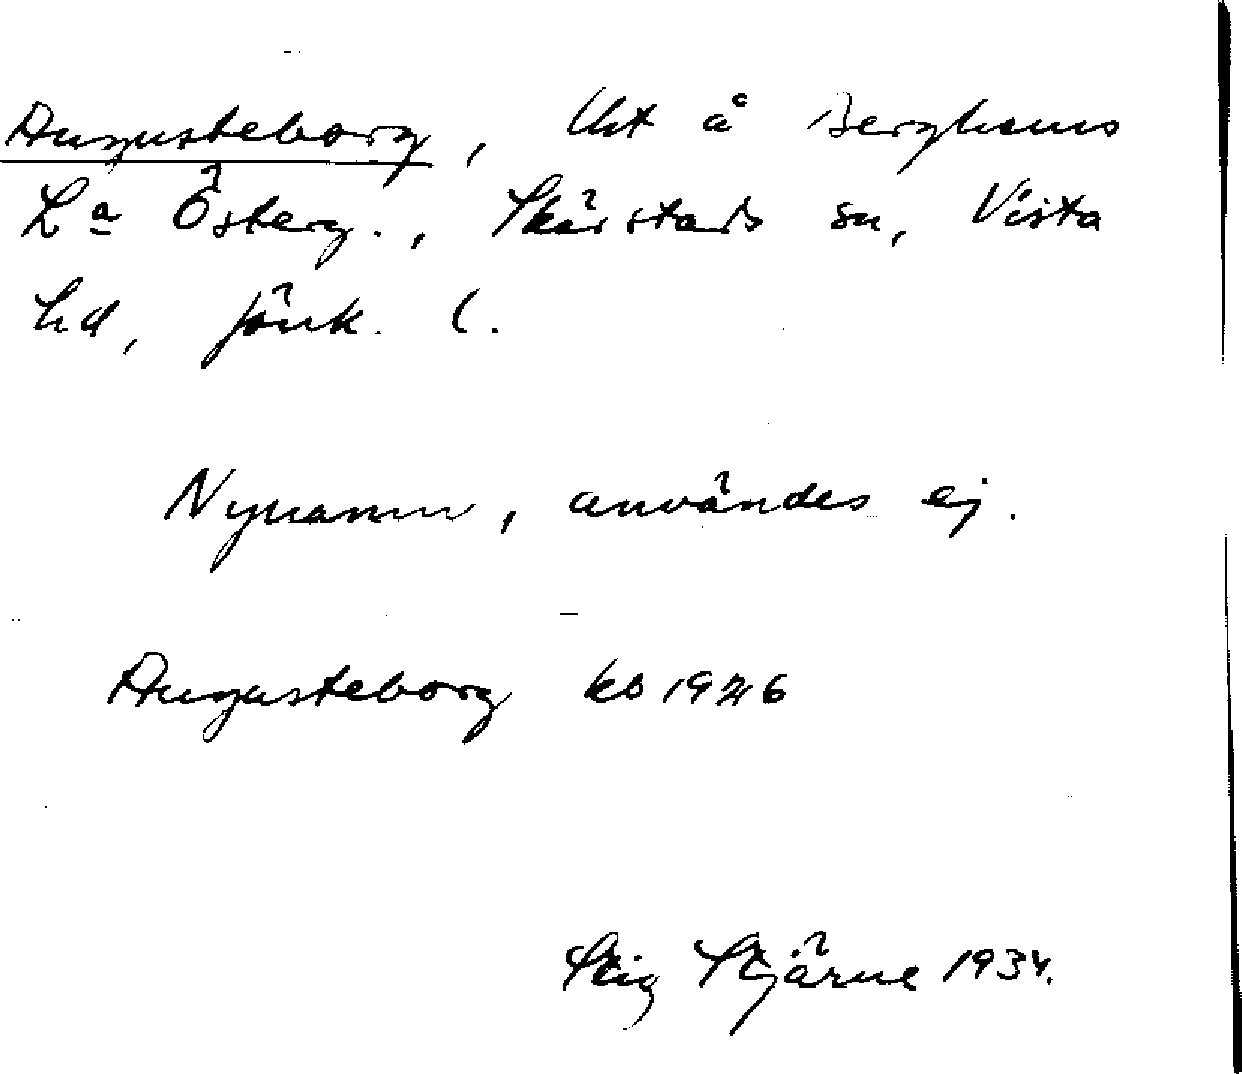 Augusteborg, lht å Berghems
La Österg., Skärstads sn, Vista
hd, Jönk. l.
Nynamn, användes ej.
Augusteborg kb 1926
Stig Stjärne 1934.